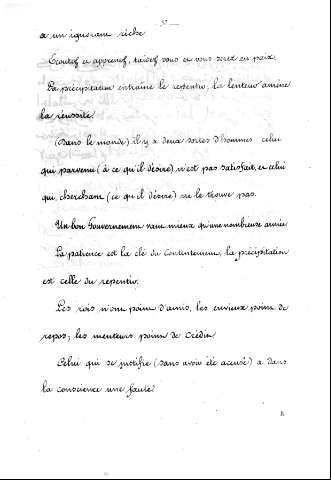 37 —
a un ignorant riche
Ecoutez et apprenez, taisez vous et vous serez en paix
La précipitation entraîne le repentir, la lenteur amène
la réussite!
(Dans le monde) il y a deux sortes d'hommes celui
qui parvenu (à ce qu'il désire) n'est pas satisfait, et celui
qui, cherchant (ce qu'il désire) ne le trouve pas.
Un bon Gouvernement vaut mieux qu'une nombreuse armée
La patience est la clé du Contentement, la précipitation
est celle du repentir.
Les rois n'ont point d'amis, les envieux point de
repos, les menteurs point de crédit
Celui qui se justifie (sans avoir été accusé) a dans
la conscience une faute!